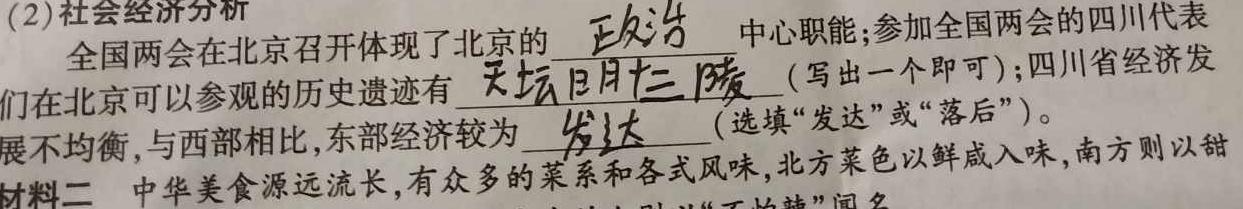 (2)社会经济分析
全国两会在北京召开体现了北京的 政治 中心职能;参加全国两会的四川代表
们在北京可以参观的历史遗迹有 天坛 明十三陵 (写出一个即可);四川省经济发
展不均衡,与西部相比,东部经济较为 发达 (选填“发达”或“落后”)。
材料二 中华美食源远流长,有众多的菜系和各式风味,北方菜色以鲜咸入味,南方则以甜
“不怕辣”闻名